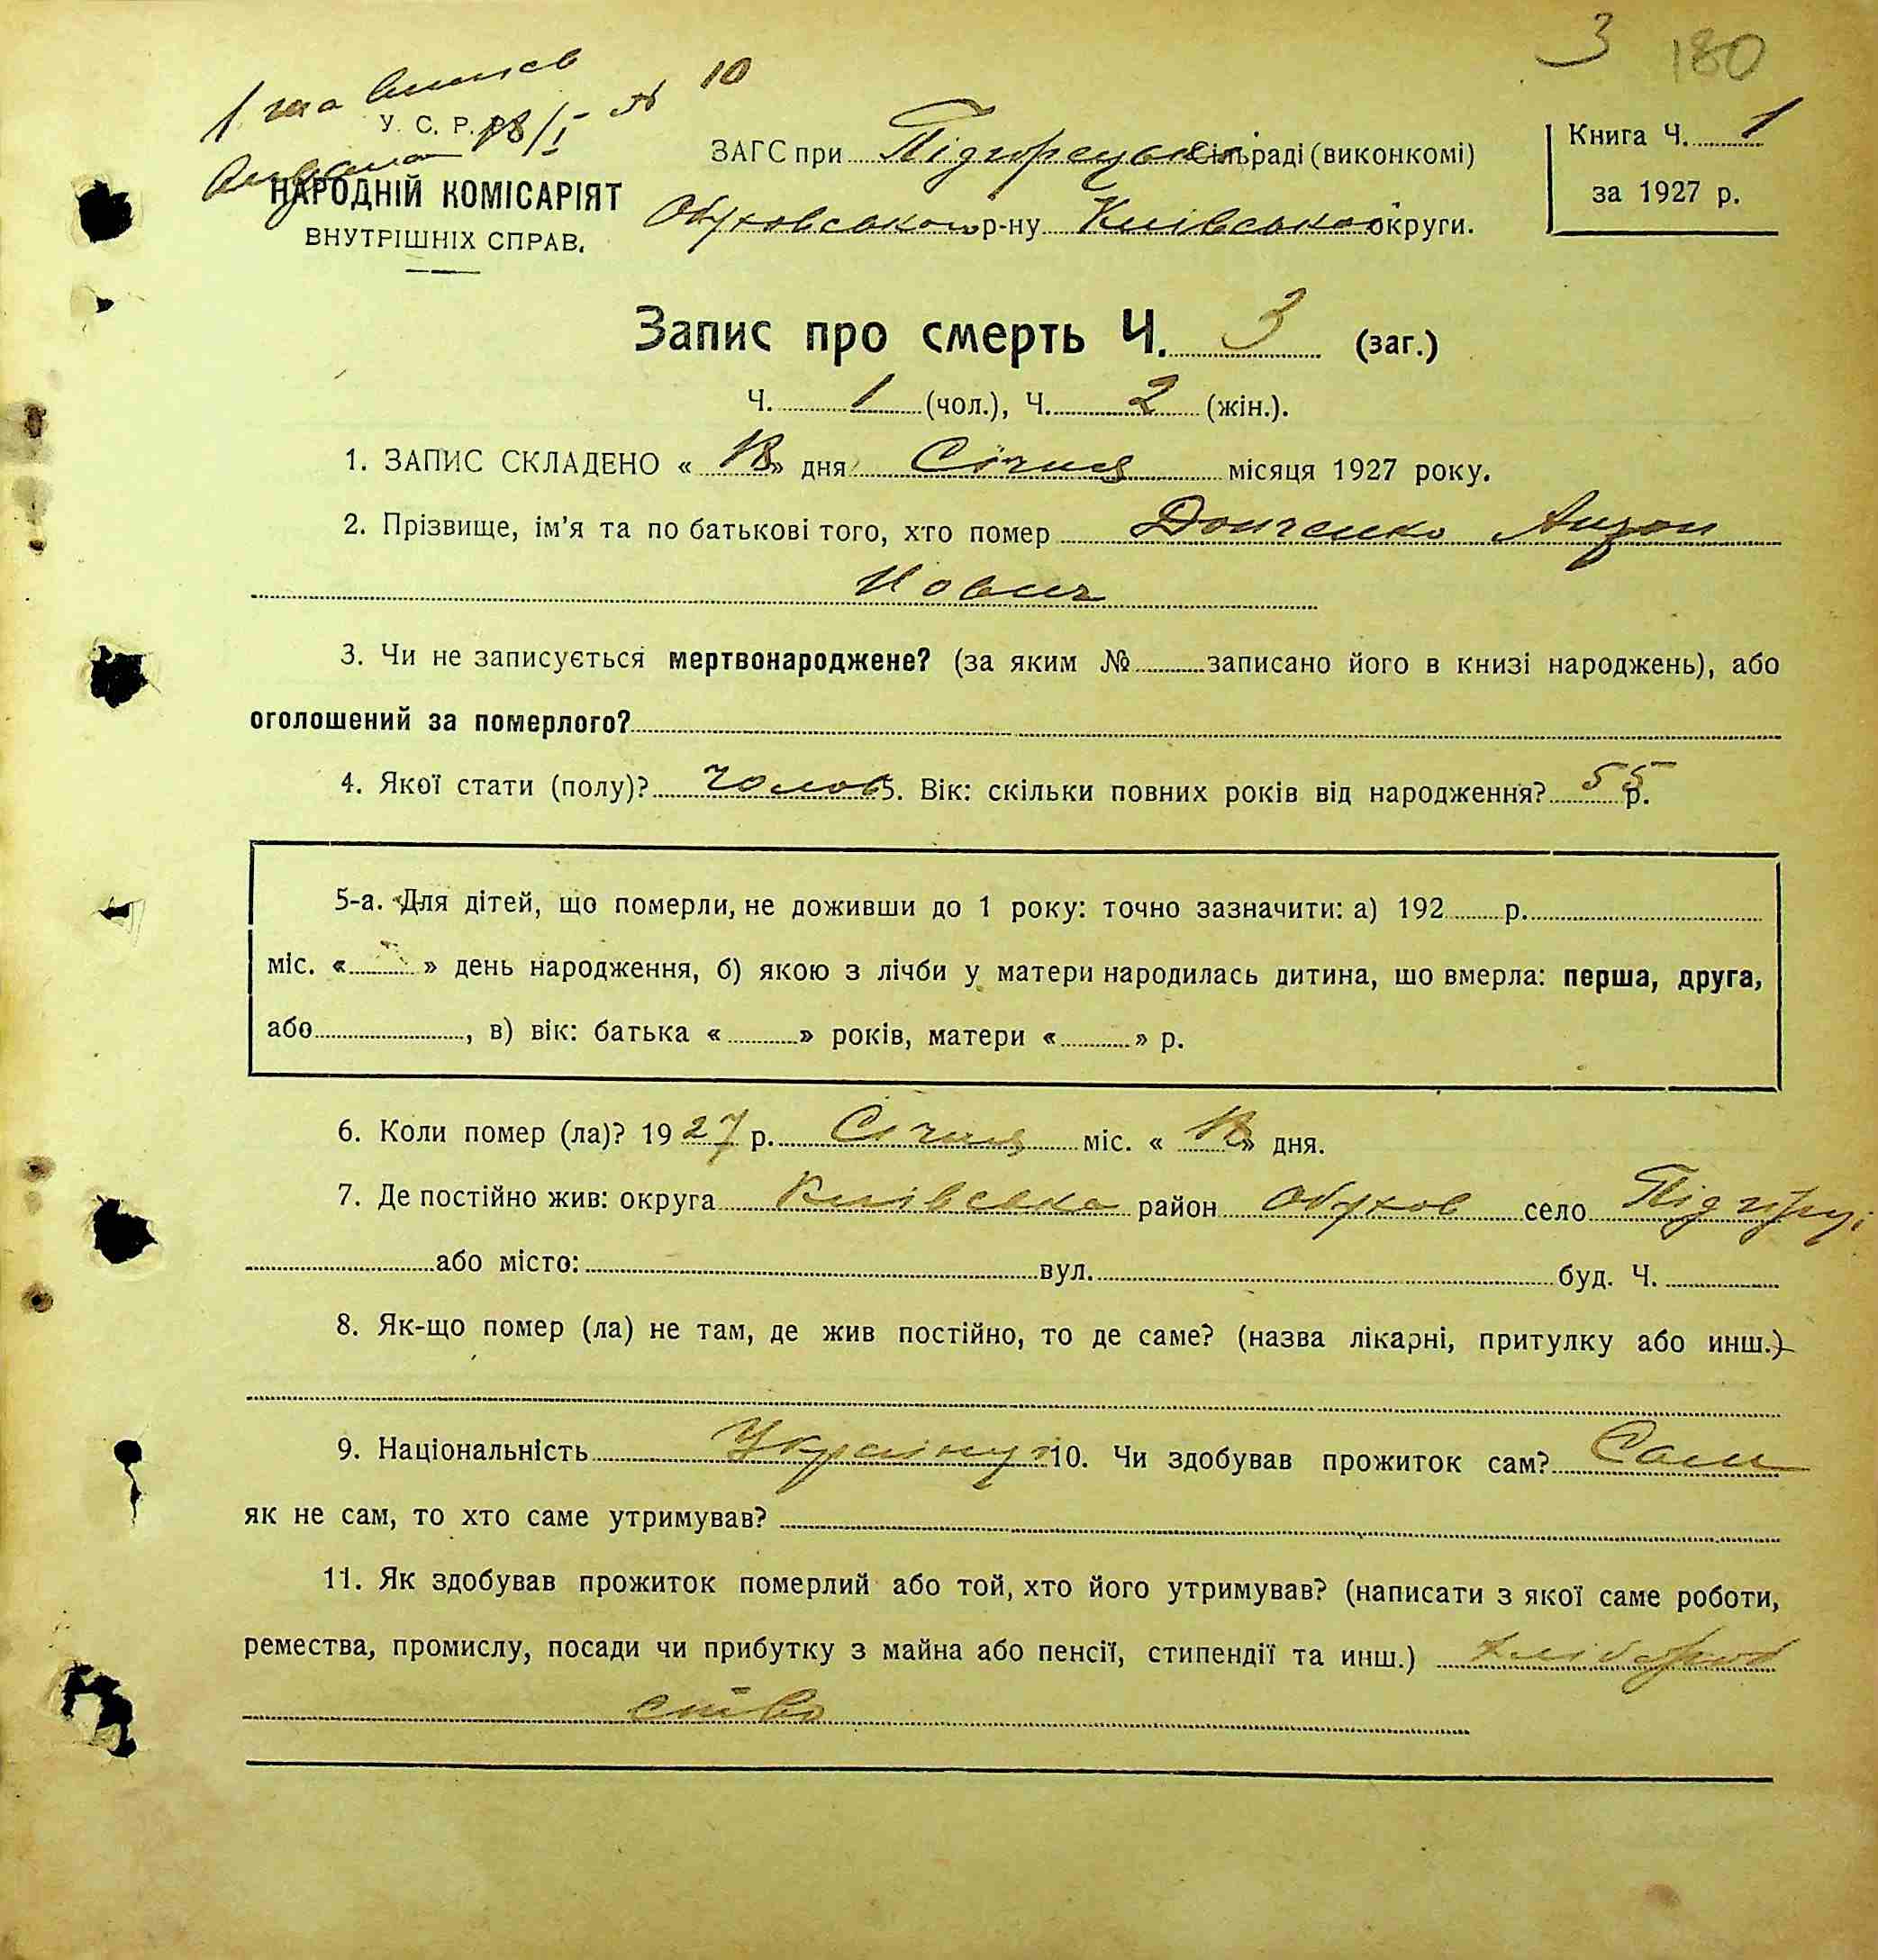 3 180
1 на 10
У. С. Р. Р. 18/I №
ЗАГС при Підгорецькій Сільраді (виконкомі)
Книга Ч. 1
НАРОДНІЙ КОМІСАРІЯТ
за 1927 р.
ВНУТРІШНІХ СПРАВ.
Обухо́вського р-ну Київської округи.
Запис про смерть Ч. 3 (заг.)
Ч. 1 (чол.), Ч. 2 (жін.).
1. ЗАПИС СКЛАДЕНО « 18 » дня Січня місяця 1927 року.
2. Прізвище, ім'я та по батькові того, хто помер Донченко Антон
Йович
3. Чи не записується мертвонароджене? (за яким № записано його в книзі народжень), або
оголошений за померлого?
4. Якої стати (полу)? Чолов 5. Вік: скільки повних років від народження? 55 р.
5-а. Для дітей, що померли, не доживши до 1 року: точно зазначити: а) 192 р.
міс. « » день народження, б) якою з лічби у матери народилась дитина, шо вмерла: перша, друга,
або , в) вік: батька « » років, матери « » р.
6. Коли помер (ла)? 1927 р. Січня міс. « 18 » дня.
7. Де постійно жив: округа Київська район Обухов село Підгірці
або місто: вул. буд. Ч.
8. Як-що помер (ла) не там, де жив постійно, то де саме? (назва лікарні, притулку або инш.)
9. Національність Українец 10. Чи здобував прожиток сам? Сам
як не сам, то хто саме утримував?
11. Як здобував прожиток померлий або той, хто його утримував? (написати з якої саме роботи,
ремества, промислу, посади чи прибутку з майна або пенсії, стипендії та инш.) хлібороб
ство